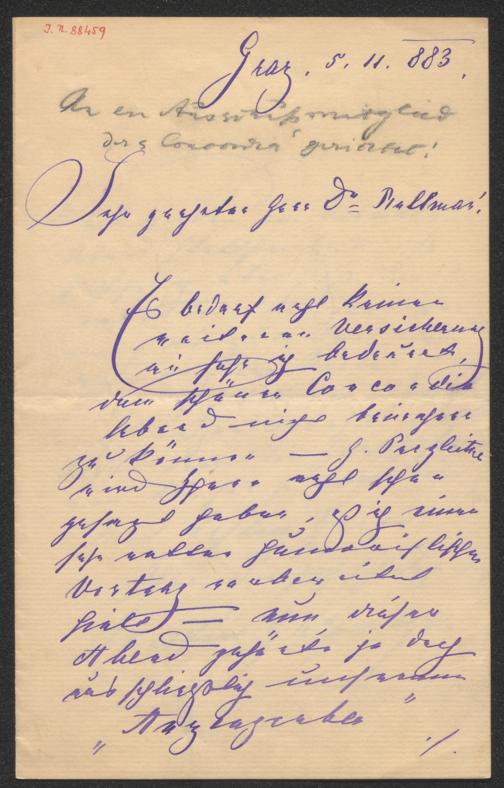 J. N. 88459
Graz. 5. 11. 883.
An ein Ausschußmitglied
der "Concordia" gerichtet!
Sehr geehrter Herr Dr
Es bedarf wohl keiner
weiteren Versicherung
wie sehr ich bedauere,
dem schönen Concordia
abend nicht beiwohnen
zu können —
wird Ihnen wohl schon
gesagt haben, daß ich einen
sehr netten humoristischen
Vortrag vorbereitet
hielt — nun dieser
Abend gehörte ja doch
ausschliesslich unserem
"Anzengruber"
./.